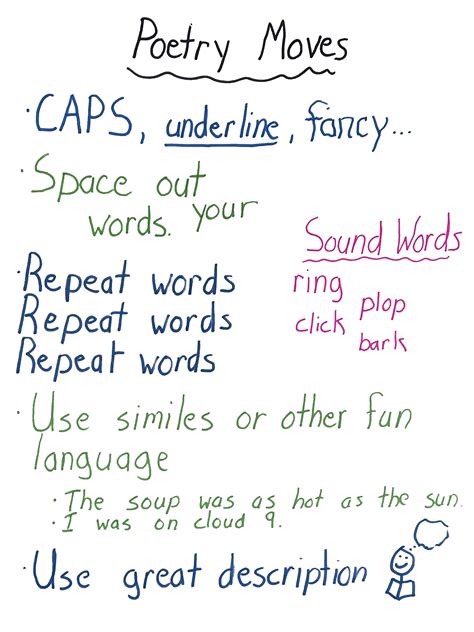 Poetry Moves
· CAPS, underline, fancy...
· Space out
words. your
· Repeat words
Repeat words
Repeat words
Sound Words
ring
plop
click
bark
· Use similes or other fun
language
· The soup was as hot as the sun.
· I was on cloud 9.
· Use great description